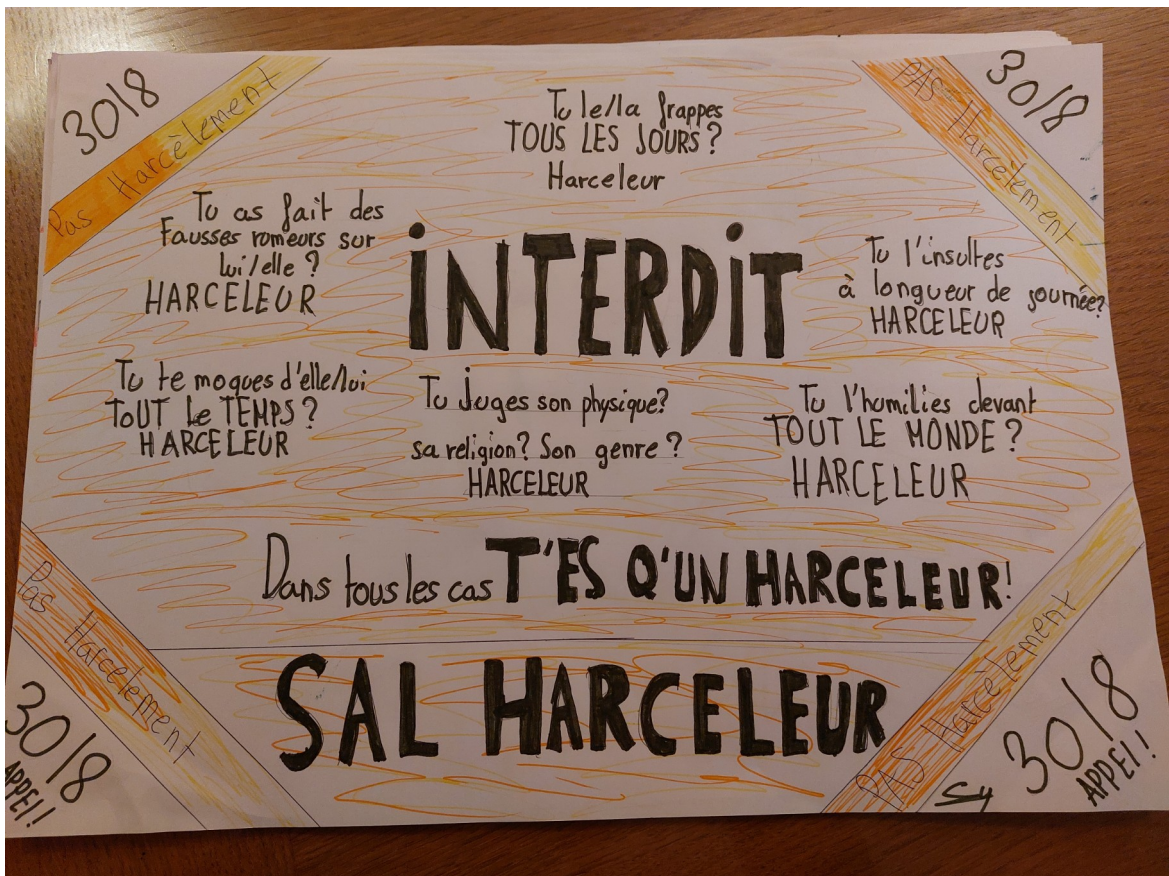 3018
Pas Harcèlement
3018
PAS Harcèlement
Tu le/la frappes
TOUS LES JOURS ?
Harceleur
Tu as fait des
Fausses romeurs sur
lui/elle ?
HARCELEUR
INTERDIT
Tu l'insultes
à longueur de journée?
HARCELEUR
Tu te moques d'elle/lui
TOUT Le TEMPS ?
HARCELEUR
Tu Juges son physique?
sa religion? Son genre ?
HARCELEUR
Tu l'humilies devant
TOUT LE MONDE ?
HARCELEUR
Dans tous les cas T'ES Q'UN HARCELEUR!
SAL HARCELEUR
Pas Harcèlement
3018
APPEl!
PAS Harcèlement
3018
APPEl!